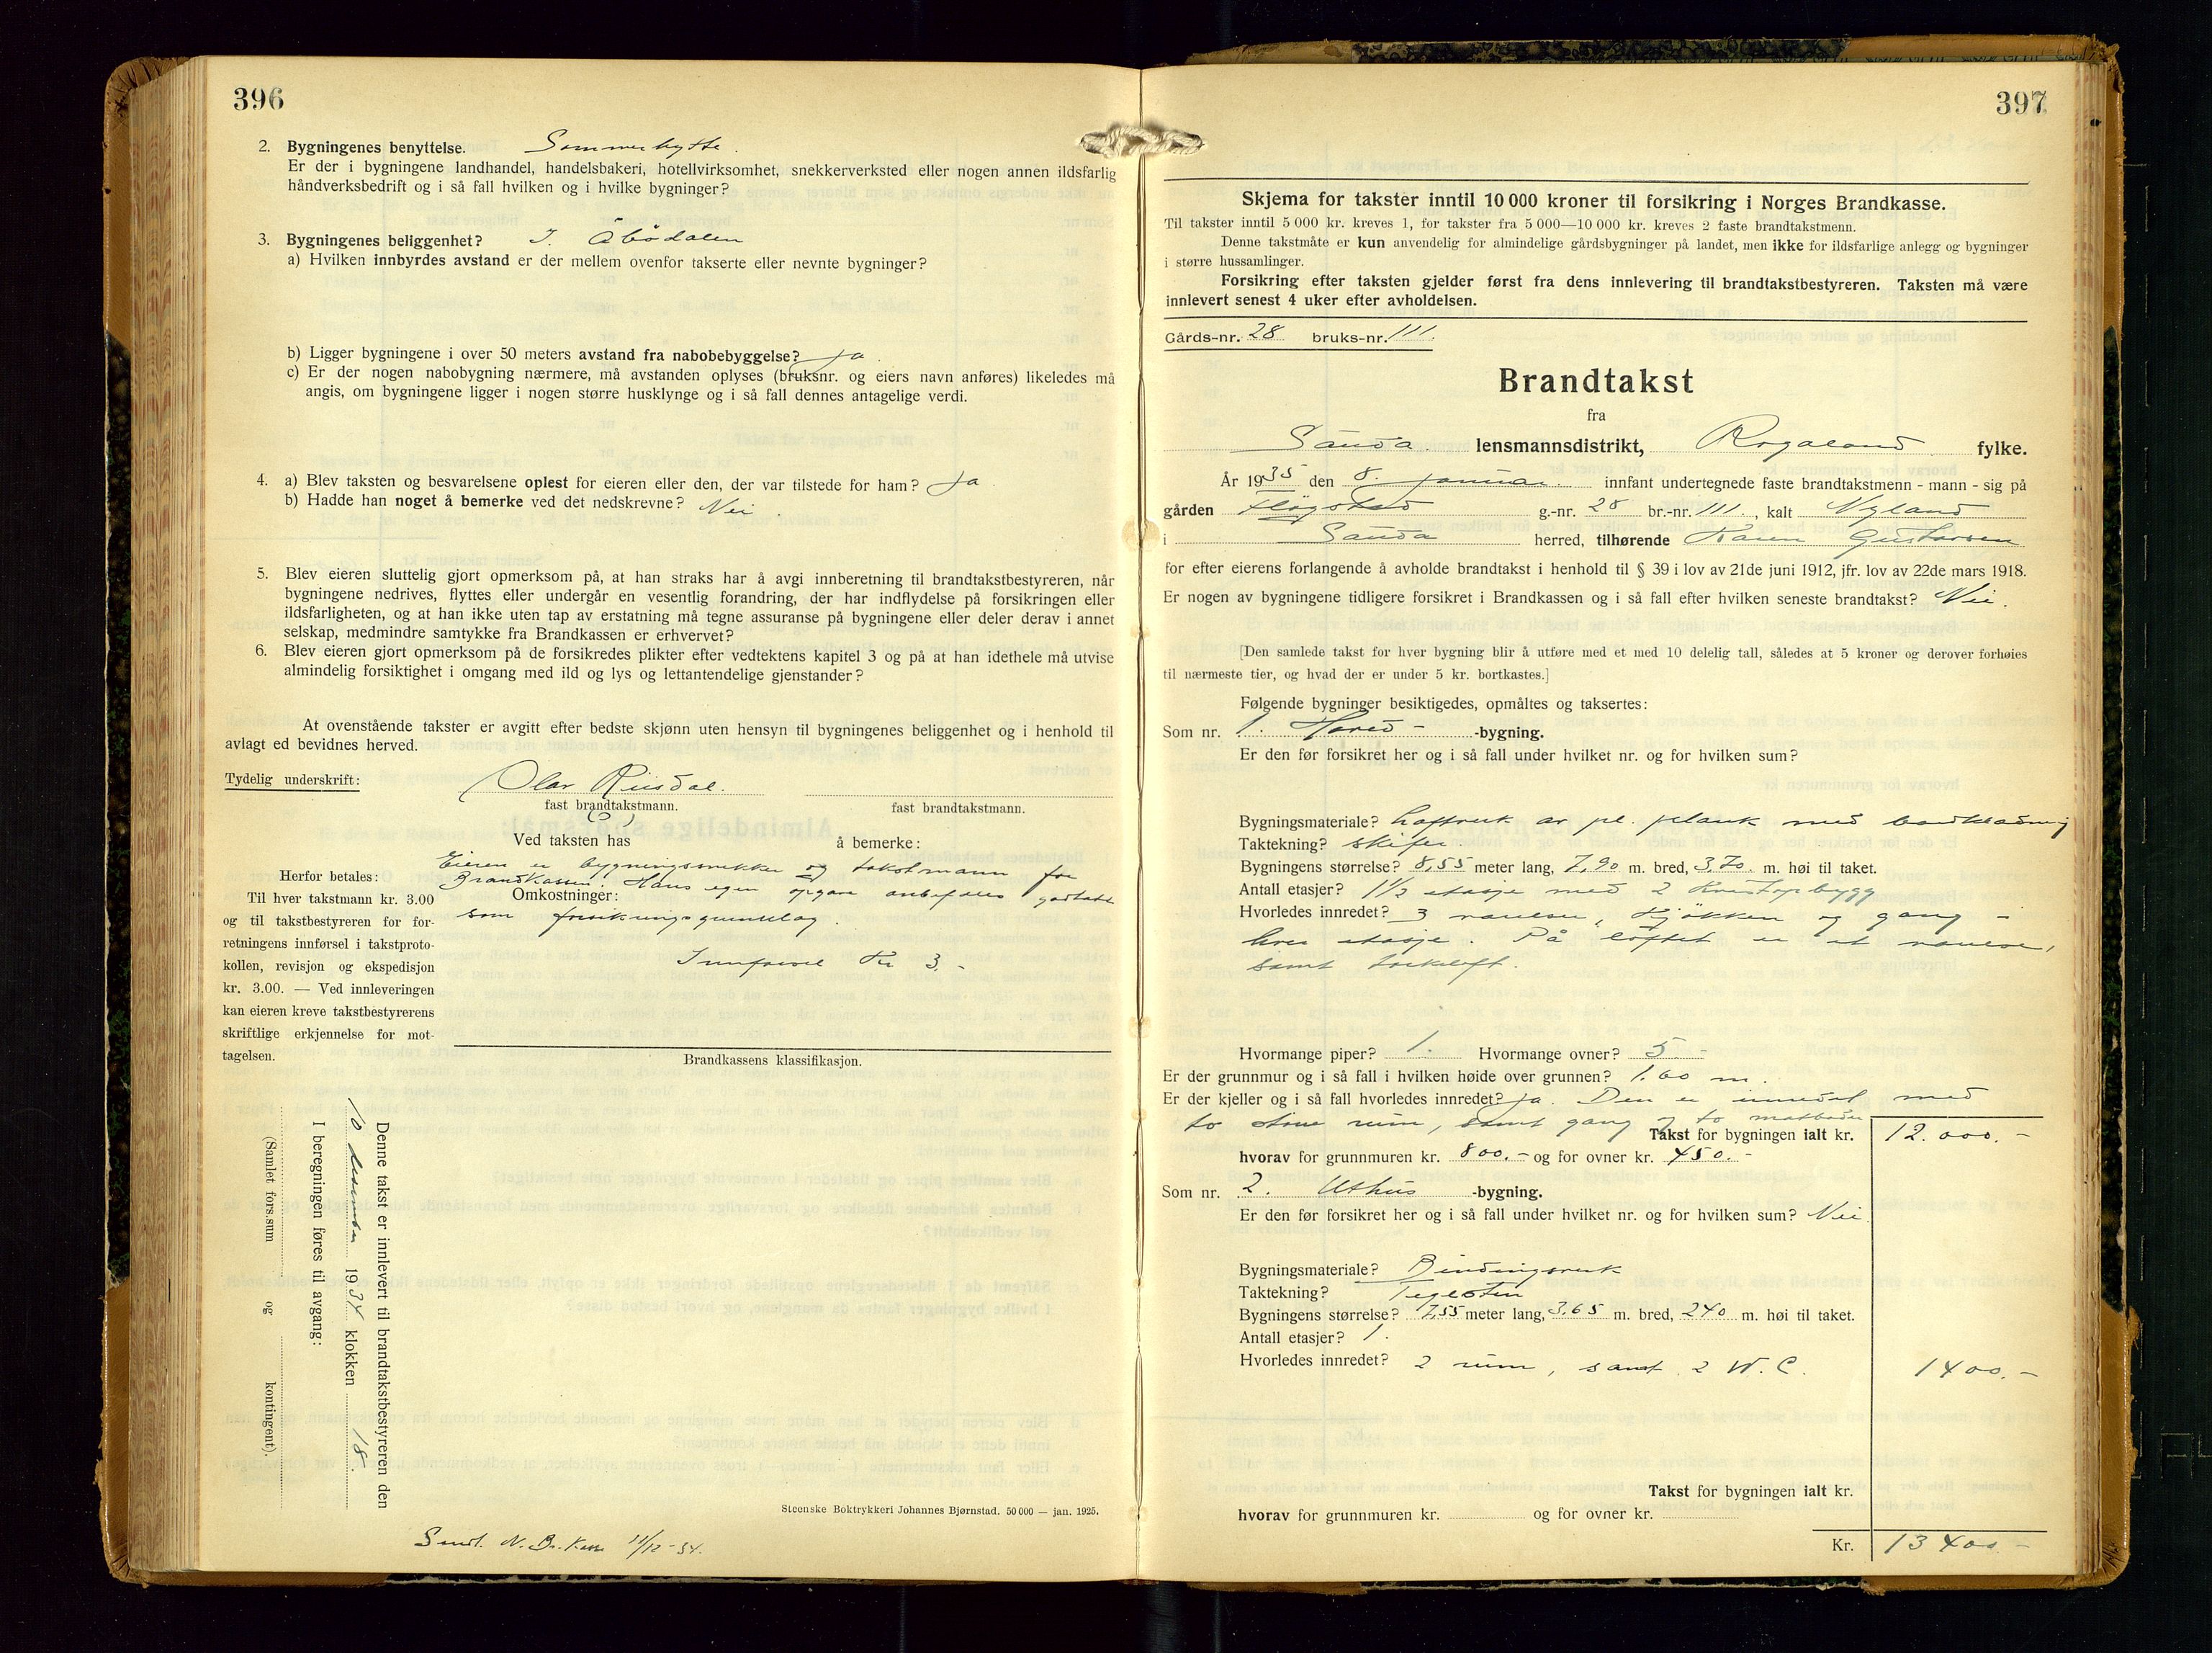 396
2. Bygningenes benyttelse. Sommerhytte.
Er der i bygningene landhandel, handelsbakeri, hotellvirksomhet, snekkerverksted eller nogen annen ildsfarlig
håndverksbedrift og i så fall hvilken og i hvilke bygninger?
3. Bygningenes beliggenhet? I. Åbödalen
a) Hvilken innbyrdes avstand er der mellem ovenfor takserte eller nevnte bygninger?
b) Ligger bygningene i over 50 meters avstand fra nabobebyggelse? Ja.
c) Er der nogen nabobygning nærmere, må avstanden oplyses (bruksnr. og eiers navn anføres) likeledes må
angis, om bygningene ligger i nogen større husklynge og i så fall dennes antagelige verdi.
4. a) Blev taksten og besvarelsene oplest for eieren eller den, der var tilstede for ham? Ja.
b) Hadde han noget å bemerke ved det nedskrevne? Nei.
5. Blev eieren sluttelig gjort opmerksom på, at han straks har å avgi innberetning til brandtakstbestyreren, når
bygningene nedrives, flyttes eller undergår en vesentlig forandring, der har indflydelse på forsikringen eller
ildsfarligheten, og at han ikke uten tap av erstatning må tegne assuranse på bygningene eller deler derav i annet
selskap, medmindre samtykke fra Brandkassen er erhvervet?
6. Blev eieren gjort opmerksom på de forsikredes plikter efter vedtektens kapitel 3 og på at han idethele må utvise
almindelig forsiktighet i omgang med ild og lys og lettantendelige gjenstander?
At ovenstående takster er avgitt efter bedste skjønn uten hensyn til bygningenes beliggenhet og i henhold til
avlagt ed bevidnes herved.
Tydelig underskrift: Olav Riisdal.
fast brandtakstmann. fast brandtakstmann.
Ved taksten has å bemerke:
Eieren er bygningssnekker og takstmann for
Brandkassen. Hans egen opgave anbefales godtatt
som forsikringsgrunnlag.
Innførsel Kr 3.-
Omkostninger:
Herfor betales:
Til hver takstmann kr. 3.00
og til takstbestyreren for for-
retningens innførsel i takstproto-
kollen, revisjon og ekspedisjon
kr. 3.00. — Ved innleveringen
kan eieren kreve takstbestyrerens
skriftlige erkjennelse for mot-
tagelsen.
Brandkassens klassifikasjon.
Denne takst er innlevert til brandtakstbestyreren den
10 desember 1934 klokken 18.
I beregningen føres til avgang:
(Samlet fors.sum og kontingent).
Steenske Boktrykkeri Johannes Bjørnstad. 50 000 — jan. 1925.
Sendt. N. Br. Kasse 11/12-34.
397
Skjema for takster inntil 10 000 kroner til forsikring i Norges Brandkasse.
Til takster inntil 5 000 kr. kreves 1, for takster fra 5 000—10 000 kr. kreves 2 faste brandtakstmenn.
Denne takstmåte er kun anvendelig for almindelige gårdsbygninger på landet, men ikke for ildsfarlige anlegg og bygninger
i større hussamlinger.
Forsikring efter taksten gjelder først fra dens innlevering til brandtakstbestyreren. Taksten må være
innlevert senest 4 uker efter avholdelsen.
Gårds-nr. 28 bruks-nr. 111.
Brandtakst
fra
Sauda lensmannsdistrikt, Rogaland fylke.
År 1935 den 8. januar. innfant undertegnede faste brandtakstmenn - mann - sig på
gården Fløgstad g.-nr. 28 br.-nr. 111., kalt Nyland
i Sauda herred, tilhørende Karen Gustavsen
for efter eierens forlangende å avholde brandtakst i henhold til § 39 i lov av 21de juni 1912, jfr. lov av 22de mars 1918.
Er nogen av bygningene tidligere forsikret i Brandkassen og i så fall efter hvilken seneste brandtakst? Nei.
[Den samlede takst for hver bygning blir å utføre med et med 10 delelig tall, således at 5 kroner og derover forhøies
til nærmeste tier, og hvad der er under 5 kr. bortkastes.]
Følgende bygninger besiktigedes, opmåltes og taksertes:
Som nr. 1. Hoved- -bygning.
Er den før forsikret her og i så fall under hvilket nr. og for hvilken sum?
Bygningsmateriale? Laftverk av pl. plank med bordkledning
Taktekning? skifer.
Bygningens størrelse? 8,55 meter lang, 7,90 m. bred, 3,70 m. høi til taket.
Antall etasjer? 1½ etasje med 2 Knustopbygg
Hvorledes innredet? 3 værelser, kjøkken og gang i
hver etasje. På loftet er et værelse,
samt tørkeloft.
Hvormange piper? 1. Hvormange ovner? 5.-
Er der grunnmur og i så fall i hvilken høide over grunnen? 1.60 m.
Er der kjeller og i så fall hvorledes innredet? ja. Den er inndelt med
to store rum, samt gang og to matboder
Takst for bygningen ialt kr. 12.000.-
hvorav for grunnmuren kr. 800.- og for ovner kr. 450.-
Som nr. 2. Uthus -bygning.
Er den før forsikret her og i så fall under hvilket nr. og for hvilken sum? Nei.
Bygningsmateriale? Bindingsverk
Taktekning? Teglsten
Bygningens størrelse? 7,55 meter lang, 3,65 m. bred, 240 m. høi til taket.
Antall etasjer? 1.
Hvorledes innredet? 2 rum, samt 2 W. C. 1400.-
Takst for bygningen ialt kr.
hvorav for grunnmuren kr. og for ovner kr.
Kr. 13400-